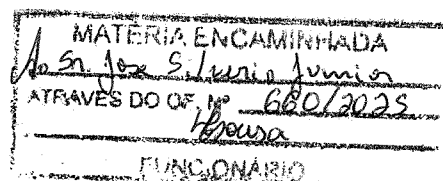 MATÉRIA ENCAMINHADA
Ao Sr. Jose Silverio Junior
ATRAVÉS DO OF. Nº 660/2025
HSousa
FUNCIONÁRIO